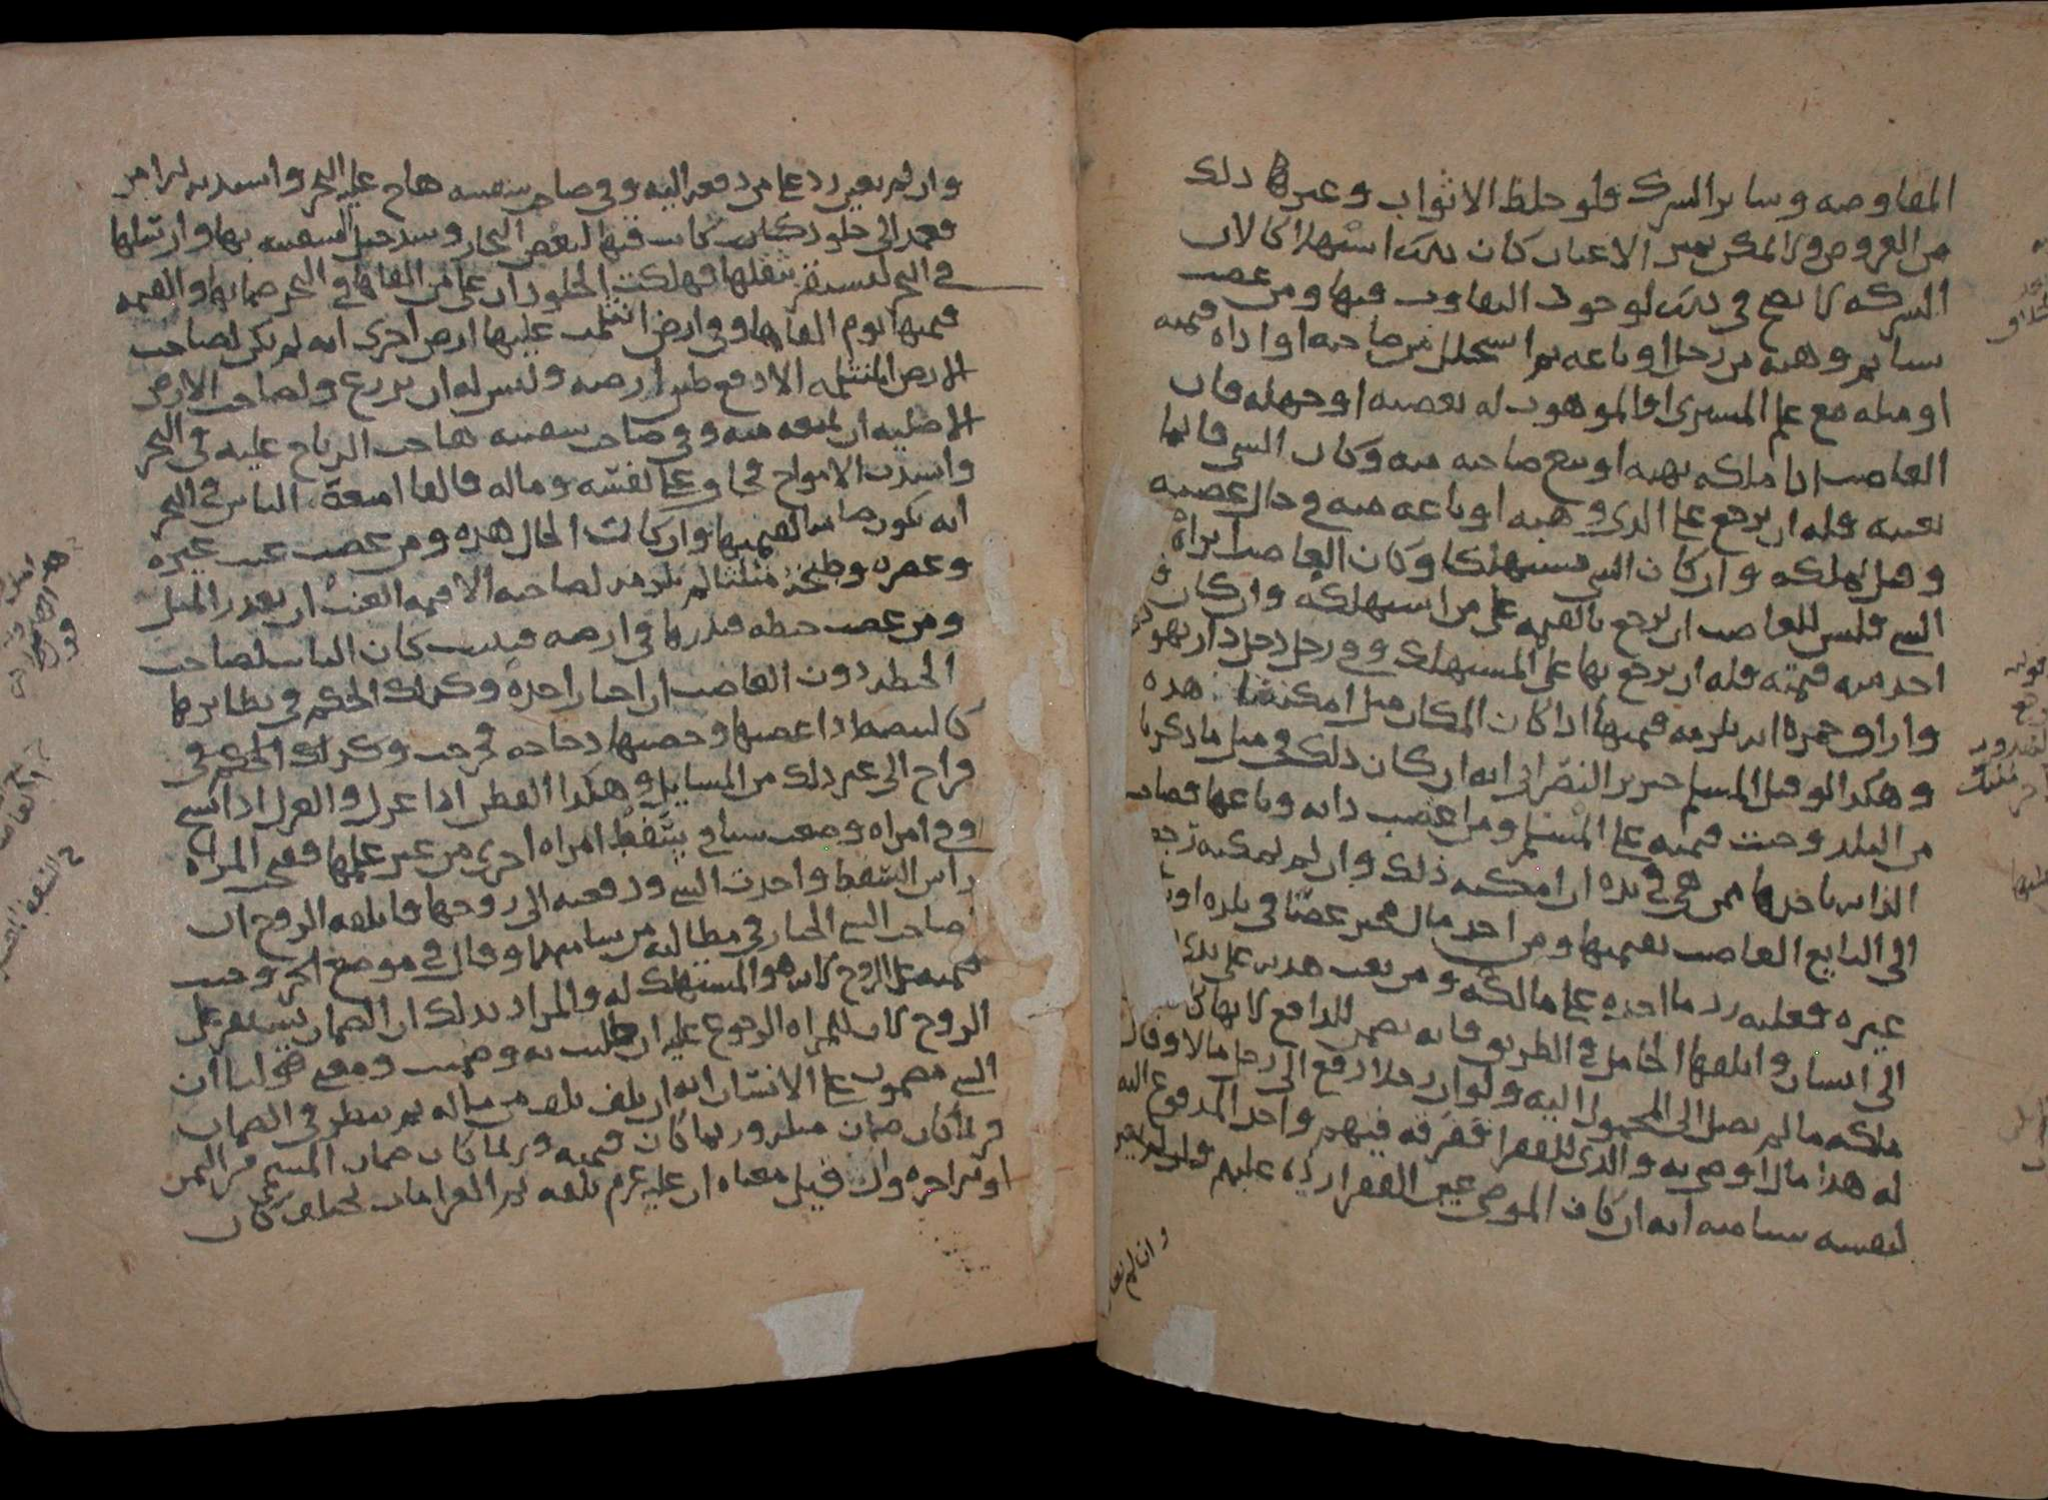 المفاوضه وساير الشرك فلو خلط الاثواب وغيرها دلك
من العروض ولا يمكن تمييز الاعيان كان دلك استهلاكا لان
الشركه لا تصح في دلك لوجود التفاوت فيها ومن غصب
سيا ثم وهبه من رجل او باعه ثم استحلل من صاحبه او اداه قيمته
او مثله مع علم المشترى او الموهوب له بغصبه او جهله فان
الغاصب اذا ملكه بهبه او ببيع صاحبه منه وكان الشي قايما
بعينه فله ان يرجع على الذي وهبه او باعه منه في حال غصبه
وقبل تملكه وان كان الشي مستهلكا وكان الغاصب ابراه
الشي فليس للغاصب ان يرجع بالقيمه على من استهلكه وان كان
اخذ منه قيمته فله ان يرجع بها على المستهلك وفي رجل دخل دار يهودي
واراق خمره انه يلزمه قيمتها اذا كان المكان مثل امكنتنا هذه
وهكذا لو قتل المسلم خنزير النصراني انه ان كان ذلك في مثل ما ذكرنا
من البلد وجبت قيمته على المسلم ومن اغتصب دابه وباعها فصاحب
الدابه ياخذها ممن هي في يده ان امكنه ذلك وان لم يمكنه رجع
الى البايع الغاصب بقيمتها ومن اخذ مال مجبر غصبا في بلده او
غيره فعليه رد ما اخذه على مالكه ومن بعث هديه على يدي
الى انسان واتلفها الحامل في الطريق فانه يضمن للدافع لانها
ملكه ما لم يصل الى المحمول اليه ولو ان رجلا دفع الى رجل مالا وقال
له هذا مال اوصي به والدي للفقرا ففرقه فيهم واخذ المدفوع اليه
لنفسه شيا منه انه ان كان الموصي عين الفقرا رده عليهم وان لم يعين
وان لم يعين
وان لم يعين رد على من دفعه اليه وفي صاحب سفينه هاج عليه البحر واشتد به
فعمد الى جلود كانت فيها لبعض التجار وشد حبل السفينه بها وارسلها
في البحر ليستقر بثقلها فهلكت الجلود ان على من القاها في البحر ضمانها والقيمه
قيمتها يوم القاها وفي ارض انثلمت عليها ارض اخرى انه لم يكن لصاحب
الارض المنثلمه الا رفع طين ارضه وليس له ان يزرع ولصاحب الارض
الاصليه ان يمنعه منه وفي صاحب سفينه هاجت الرياح عليه في البحر
واشتدت الامواج فخاف على نفسه وماله فالقا امتعة الناس في البحر
انه يكون ضامنا لقيمتها وان كانت الحال هذه ومن غصب عنب غيره
وعصره وطبخه مثلثا لم يلزمه لصاحبه الا قيمه العنب ان تعذر المثل
ومن غصب حنطه فبذرها في ارضه فنبتت كان النبات لصاحب
الحنطه دون الغاصب ان اختار اخذه وكذلك الحكم في نظايرها
كالبيضه اذا غصبها وحضنها دجاجه فرخت وكذلك الحكم في
فراخ الى غير ذلك من المسايل وهكذا القطن اذا غزل والغزل اذا نسج
وفي امراه وضعت شيا في سفط امراه اخرى من غير علمها ففتحت المراه
راس السفط واخذت الشي ودفعته الى زوجها فاتلفه الزوج ان
صاحب الشي الخيار في مطالبه من شا منهما وقال في موضع اخر وجبت
قيمته على الزوج لانه هو المستهلك له والمراد بذلك ان الضمان يستقر على
الزوج لان للمراه الرجوع عليه ان طلبت به وضمنت ومعنى قولنا ان
الشي مضمون على الانسان انه ان تلف تلف من ماله ثم ينظر في الضمان
فربما كان ضمان مثله وربما كان قيمته وربما كان ضمان المسمى من الثمن
او من اجره وان قيل معناه ان عليه غرم تلفه لان الغرامات تختلف كان